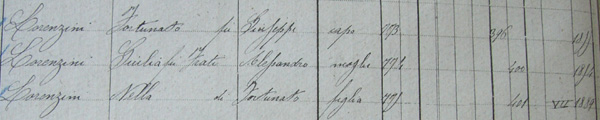 Lorenzini Fortunato fu Giuseppe capo 773 396
Lorenzini Giulia fu Alessandro moglie 774 400
Lorenzini Nella di Fortunato figlia 775 401 VII